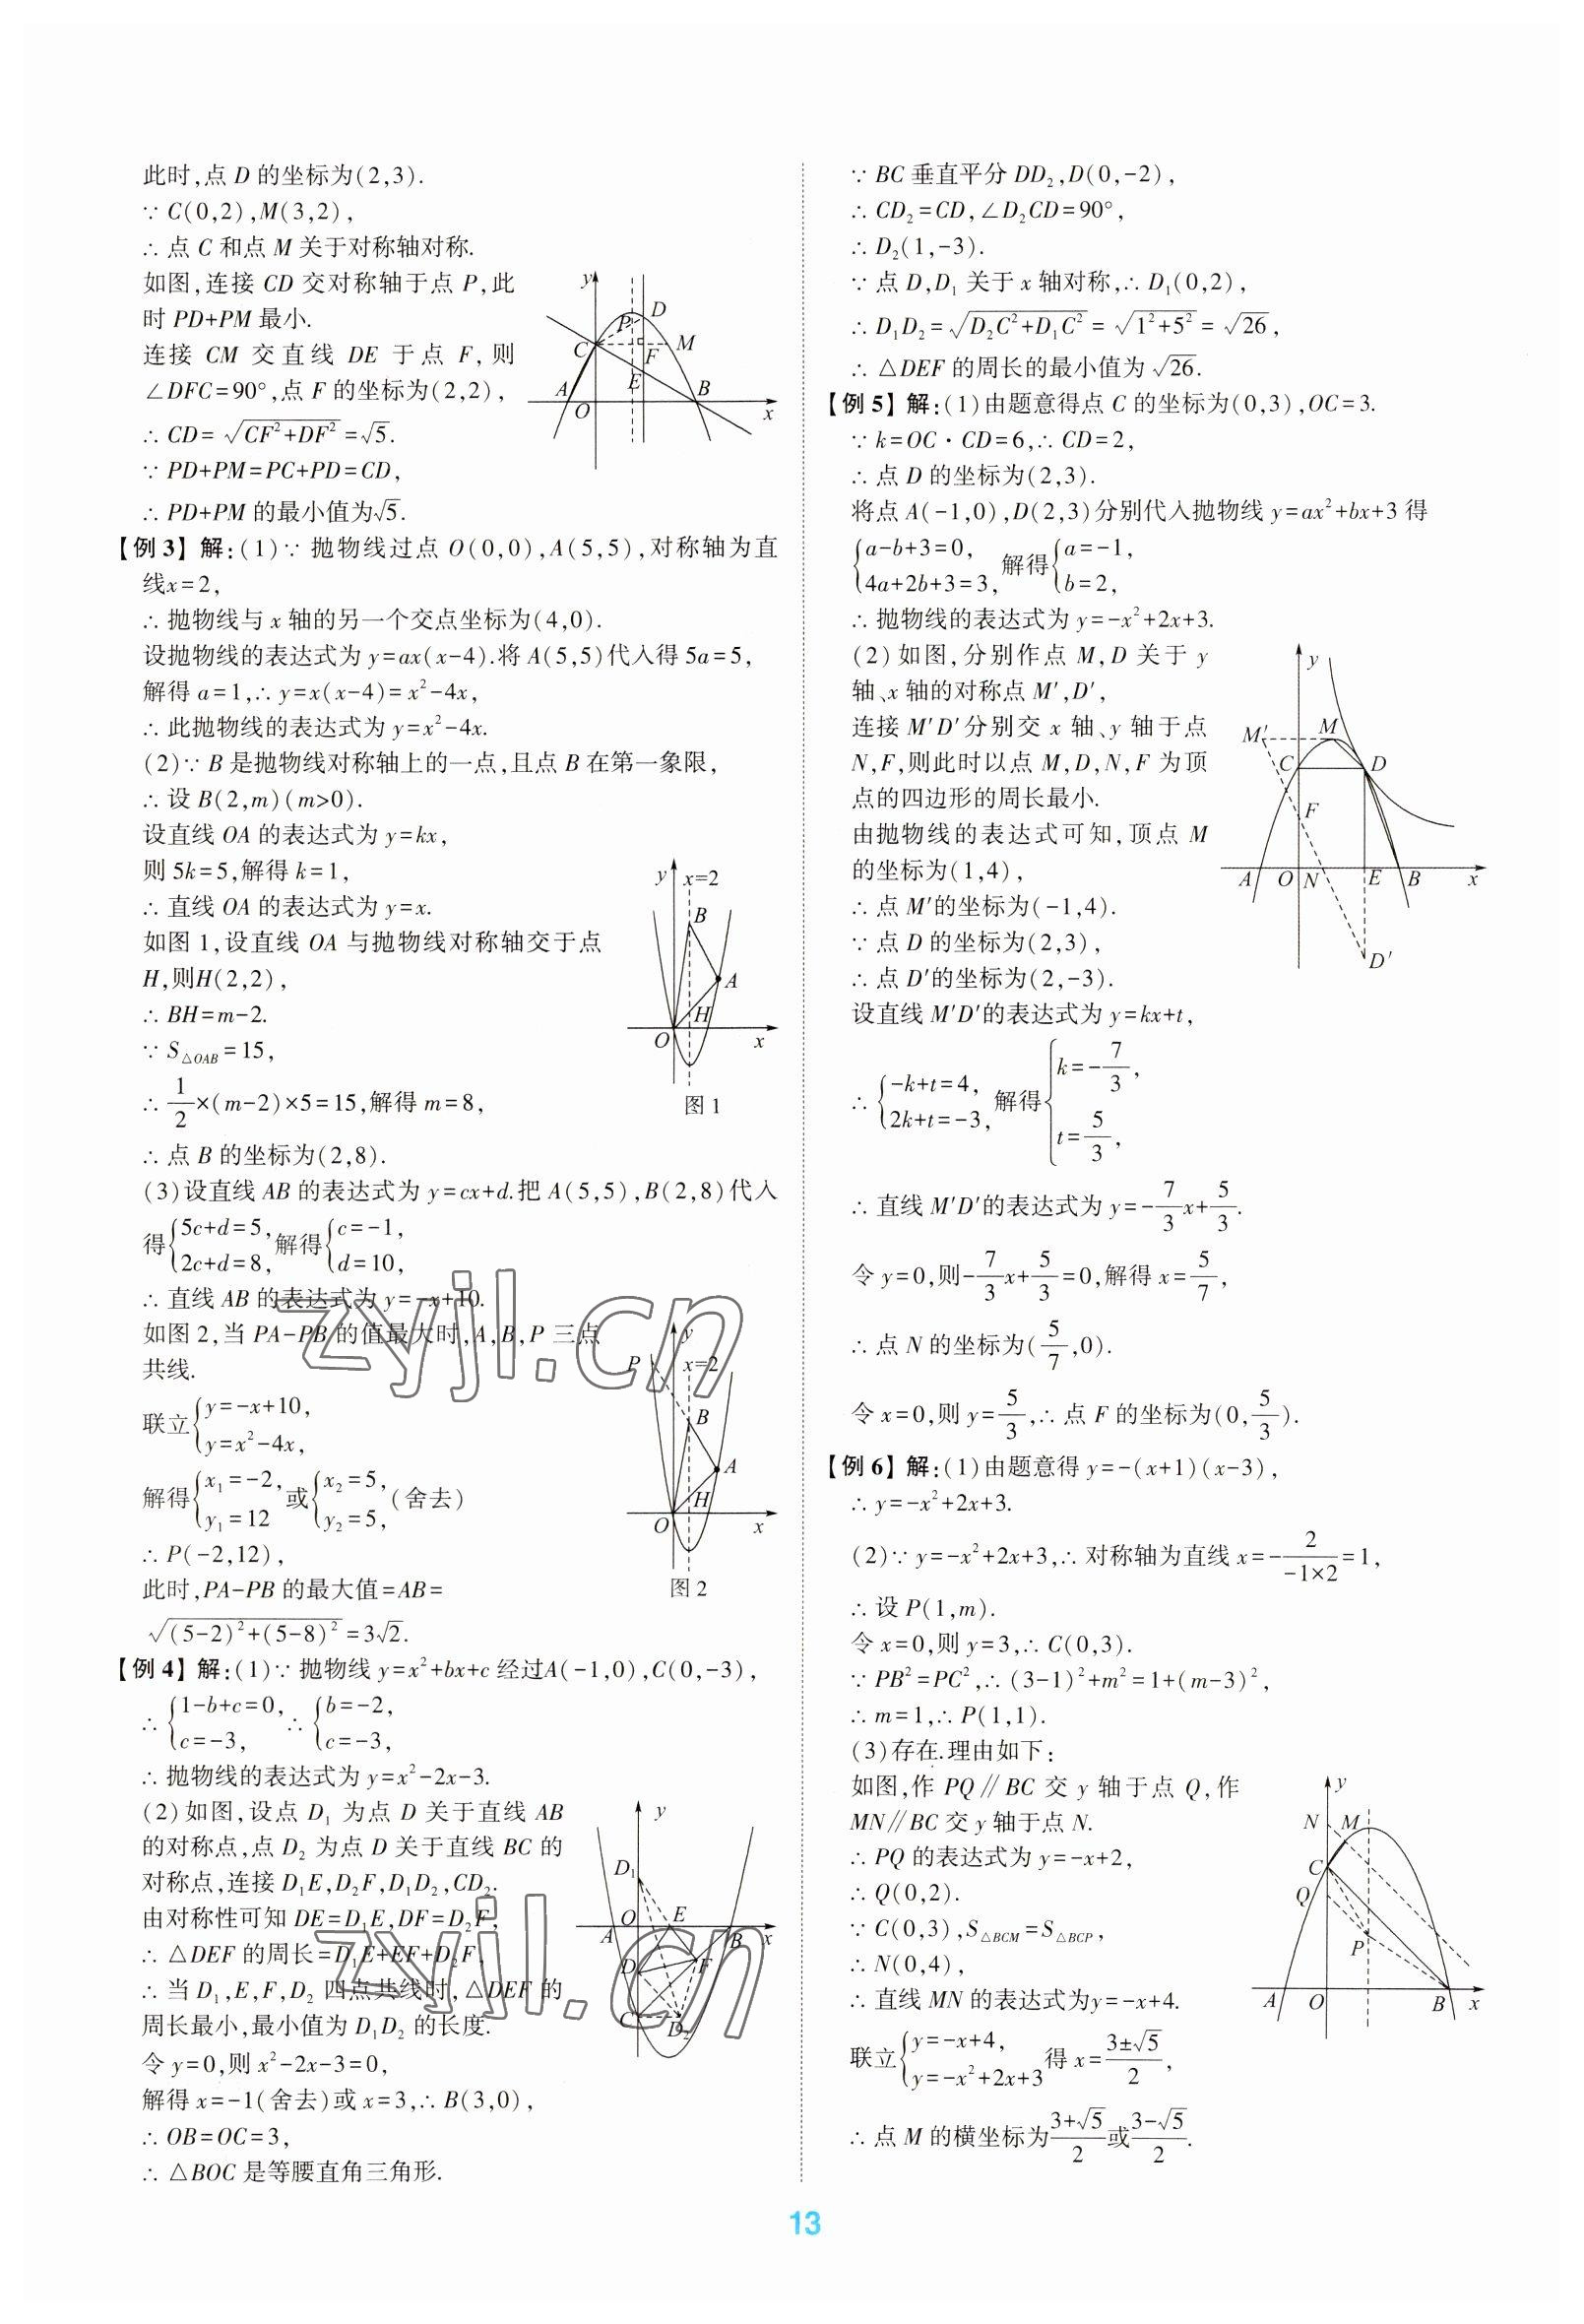 此时,点 D 的坐标为(2,3).
∵ C(0,2),M(3,2),
∴ 点 C 和点 M 关于对称轴对称.
如图,连接 CD 交对称轴于点 P,此
时 PD+PM 最小.
连接 CM 交直线 DE 于点 F,则
∠DFC=90°,点 F 的坐标为(2,2),
∴ CD=√(CF²+DF²)=√5.
∵ PD+PM=PC+PD=CD,
∴ PD+PM 的最小值为√5.
y
P
D
C
F
M
A
O
E
B
x
【例 3】解:(1)∵ 抛物线过点 O(0,0),A(5,5),对称轴为直
线x=2,
∴ 抛物线与 x 轴的另一个交点坐标为(4,0).
设抛物线的表达式为 y=ax(x-4).将 A(5,5)代入得 5a=5,
解得 a=1,∴ y=x(x-4)=x²-4x,
∴ 此抛物线的表达式为 y=x²-4x.
(2)∵ B 是抛物线对称轴上的一点,且点 B 在第一象限,
∴ 设 B(2,m)(m>0).
设直线 OA 的表达式为 y=kx,
则 5k=5,解得 k=1,
∴ 直线 OA 的表达式为 y=x.
如图 1,设直线 OA 与抛物线对称轴交于点
H,则H(2,2),
∴ BH=m-2.
∵ S△OAB=15,
∴ 1/2×(m-2)×5=15,解得 m=8,
∴ 点 B 的坐标为(2,8).
y
x=2
B
A
H
O
x
图 1
(3)设直线 AB 的表达式为 y=cx+d.把 A(5,5),B(2,8)代入
得{5c+d=5, 2c+d=8, 解得{c=-1, d=10,
∴ 直线 AB 的表达式为 y=-x+10.
如图 2,当 PA-PB 的值最大时,A,B,P 三点
共线.
联立{y=-x+10, y=x²-4x,
解得{x₁=-2, y₁=12 或{x₂=5, y₂=5, (舍去)
∴ P(-2,12),
此时,PA-PB 的最大值=AB=
√((5-2)²+(5-8)²)=3√2.
y
P
x=2
B
A
H
O
x
图 2
zyjl.cn
【例 4】解:(1)∵ 抛物线 y=x²+bx+c 经过A(-1,0),C(0,-3),
∴ {1-b+c=0, c=-3, ∴ {b=-2, c=-3,
∴ 抛物线的表达式为 y=x²-2x-3.
(2)如图,设点 D₁ 为点 D 关于直线 AB
的对称点,点 D₂ 为点 D 关于直线 BC 的
对称点,连接 D₁E,D₂F,D₁D₂,CD₂.
由对称性可知 DE=D₁E,DF=D₂F,
∴ △DEF 的周长=D₁E+EF+D₂F,
∴ 当 D₁,E,F,D₂ 四点共线时,△DEF 的
周长最小,最小值为 D₁D₂ 的长度.
令 y=0,则 x²-2x-3=0,
解得 x=-1(舍去)或 x=3,∴ B(3,0),
∴ OB=OC=3,
∴ △BOC 是等腰直角三角形.
y
D₁
O
E
A
B
x
D
F
C
D₂
zyjl.cn
∵ BC 垂直平分 DD₂,D(0,-2),
∴ CD₂=CD,∠D₂CD=90°,
∴ D₂(1,-3).
∵ 点 D,D₁ 关于 x 轴对称,∴ D₁(0,2),
∴ D₁D₂=√(D₂C²+D₁C²)=√(1²+5²)=√26,
∴ △DEF 的周长的最小值为 √26.
【例 5】解:(1)由题意得点 C 的坐标为(0,3),OC=3.
∵ k=OC·CD=6,∴ CD=2,
∴ 点 D 的坐标为(2,3).
将点 A(-1,0),D(2,3)分别代入抛物线 y=ax²+bx+3 得
{a-b+3=0, 4a+2b+3=3, 解得{a=-1, b=2,
∴ 抛物线的表达式为 y=-x²+2x+3.
(2)如图,分别作点 M,D 关于 y
轴、x 轴的对称点 M′,D′,
连接 M′D′分别交 x 轴、y 轴于点
N,F,则此时以点 M,D,N,F 为顶
点的四边形的周长最小.
由抛物线的表达式可知,顶点 M
的坐标为(1,4),
∴ 点 M′的坐标为(-1,4).
∵ 点 D 的坐标为(2,3),
∴ 点 D′的坐标为(2,-3).
设直线 M′D′的表达式为 y=kx+t,
y
M′
M
C
D
F
A
O
N
E
B
x
D′
∴ {-k+t=4, 2k+t=-3, 解得{k=-7/3, t=5/3,
∴ 直线 M′D′的表达式为 y=-7/3x+5/3.
令 y=0,则-7/3x+5/3=0,解得 x=5/7,
∴ 点 N 的坐标为(5/7,0).
令 x=0,则 y=5/3,∴ 点 F 的坐标为(0,5/3).
【例 6】解:(1)由题意得 y=-(x+1)(x-3),
∴ y=-x²+2x+3.
(2)∵ y=-x²+2x+3,∴ 对称轴为直线 x=-2/(-1×2)=1,
∴ 设 P(1,m).
令 x=0,则 y=3,∴ C(0,3).
∵ PB²=PC²,∴ (3-1)²+m²=1+(m-3)²,
∴ m=1,∴ P(1,1).
(3)存在.理由如下:
如图,作 PQ∥BC 交 y 轴于点 Q,作
MN∥BC 交 y 轴于点 N.
∴ PQ 的表达式为 y=-x+2,
∴ Q(0,2).
∵ C(0,3),S△BCM=S△BCP,
∴ N(0,4),
∴ 直线 MN 的表达式为y=-x+4.
联立{y=-x+4, y=-x²+2x+3 得 x=(3±√5)/2,
∴ 点 M 的横坐标为(3+√5)/2或(3-√5)/2.
y
N
M
C
Q
P
A
O
B
x
13